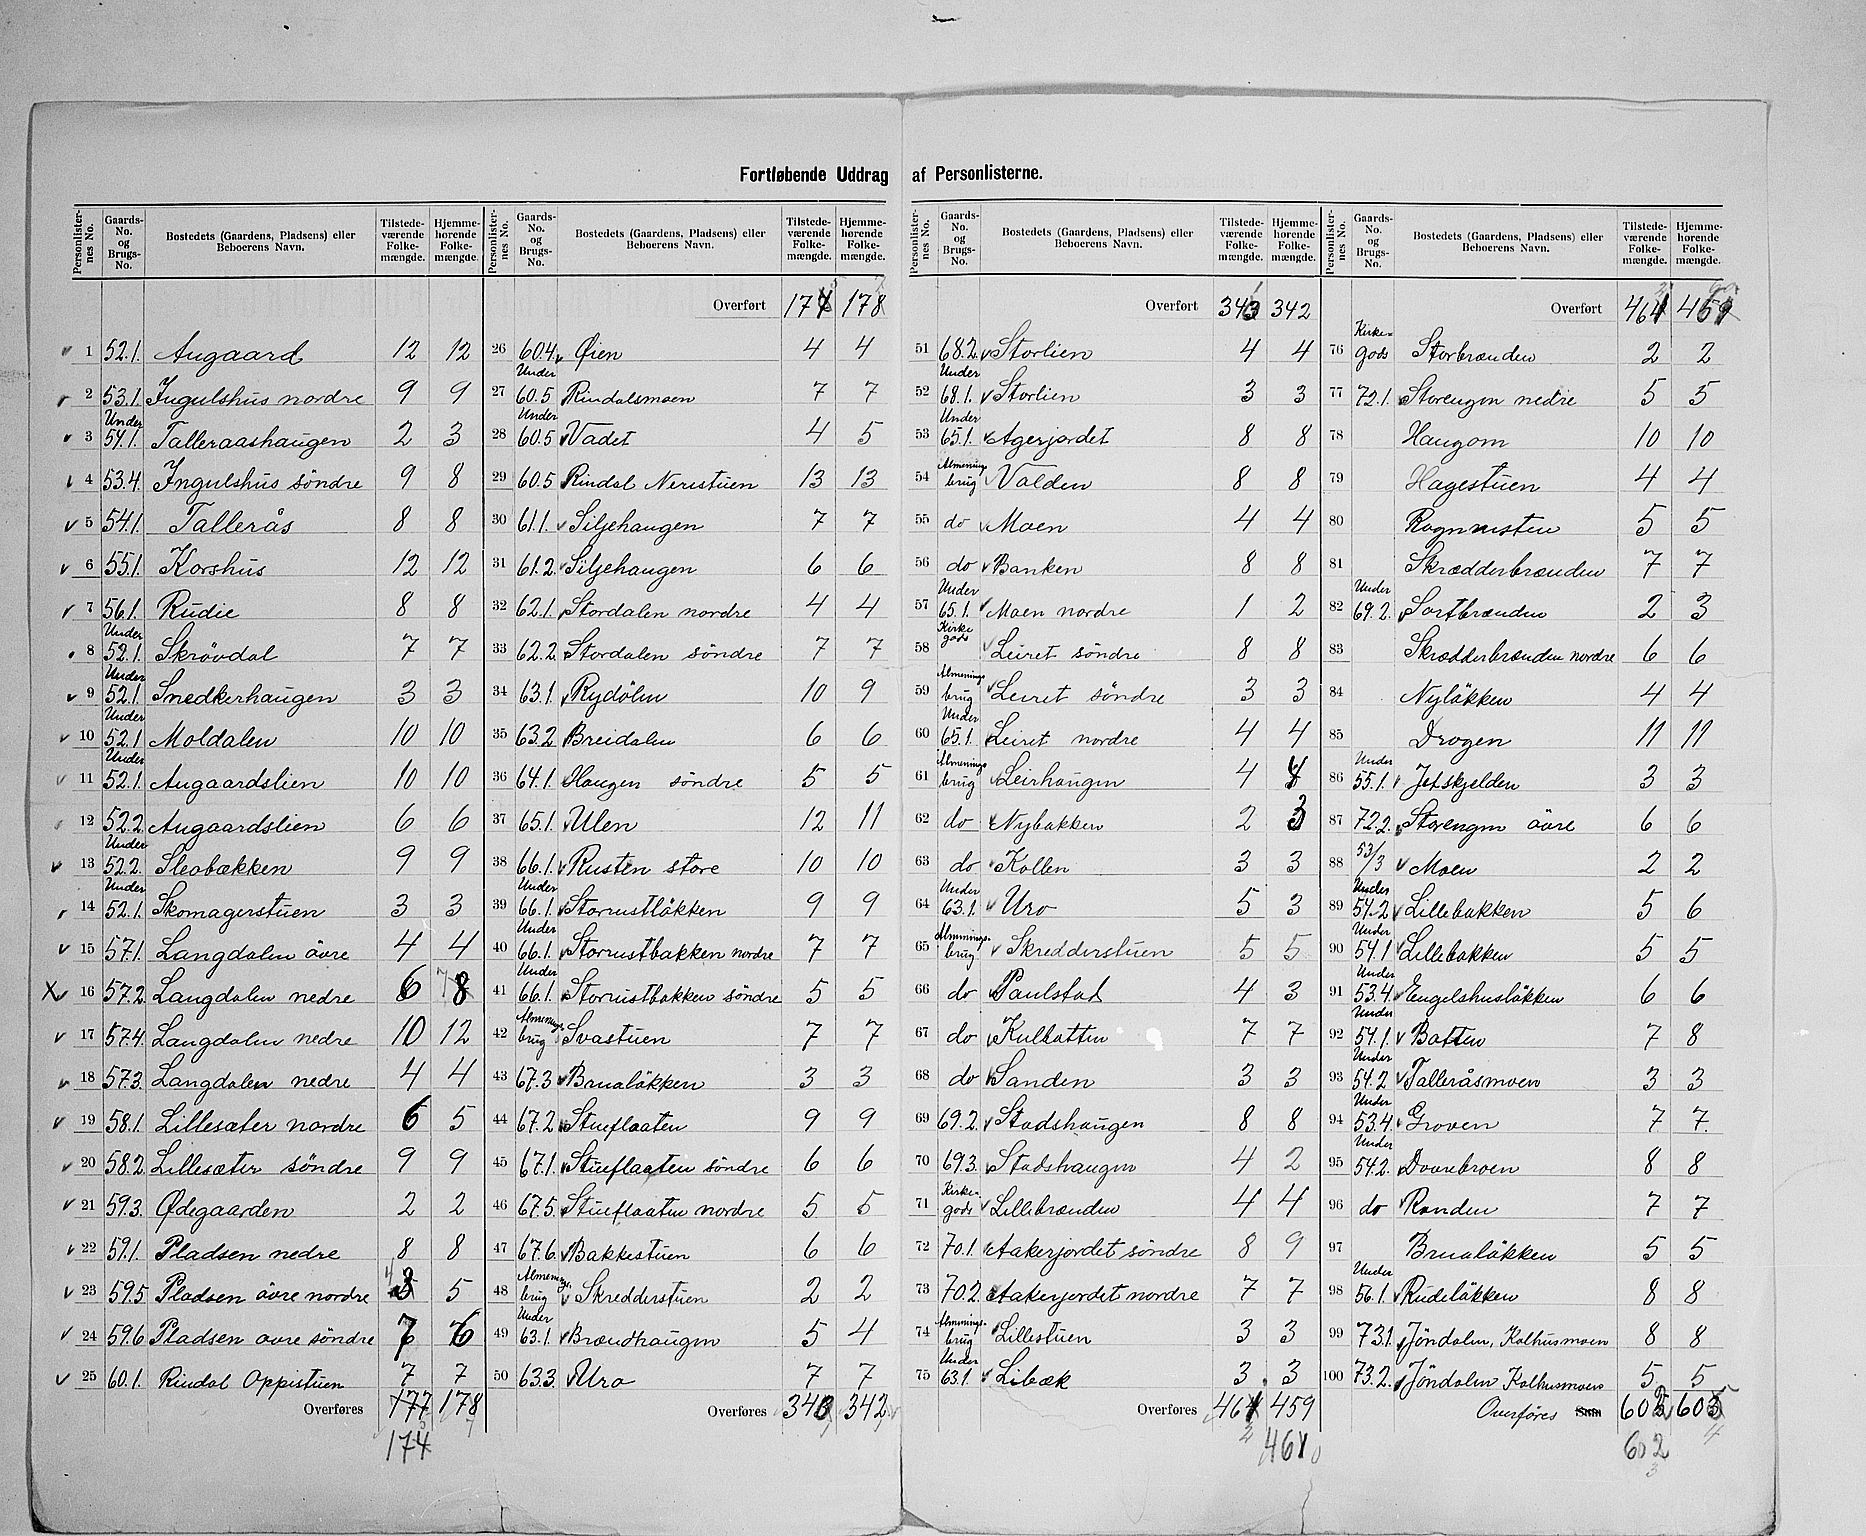 Fortløbende Uddrag af Personlisterne.
Personlister-nes No. | Gaards-No. og Brugs-No. | Bostedets (Gaardens, Pladsens) eller Beboerens Navn. | Tilstede-værende Folke-mængde. | Hjemme-hørende Folke-mængde.
1 52.1. Augaard 12 12
2 53.1. Ingulshus nordre 9 9
3 Under 54.1. Talleraashaugen 2 3
4 53.4. Ingulshus söndre 9 8
5 54.1. Tallerås 8 8
6 55.1. Korshus 12 12
7 56.1. Rudie 8 8
8 Under 52.1. Skrövdal 7 7
9 Under 52.1. Snedkerhaugen 3 3
10 Under 52.1 Moldalen 10 10
11 Under 52.1. Augaardslien 10 10
12 52.2. Augaardslien 6 6
13 Under 52.2. Sleobækken 9 9
14 Under 52.1. Skomagerstuen 3 3
15 57.1. Langdalen övre 4 4
16 57.2. Langdalen nedre 6 8
17 57.4. Langdalen nedre 10 12
18 57.3. Langdalen nedre 4 4
19 58.1. Lillesæter nordre 6 5
20 58.2. Lillesæter söndre 9 9
21 59.3. Ødegaarden 2 2
22 59.1. Pladsen nedre 8 8
23 59.5 Pladsen övre nordre 5
24 59.6 Pladsen övre söndre 7 6
25 60.1. Rindal Oppistuen 7 7
Overføres 177 178
174
Personlister-nes No. | Gaards-No. og Brugs-No. | Bostedets (Gaardens, Pladsens) eller Beboerens Navn. | Tilstede-værende Folke-mængde. | Hjemme-hørende Folke-mængde.
Overført 174 178
26 60.4. Øien 4 4
27 Under 60.5 Rindalsmoen 7 7
28 Under 60.5 Vadet 4 5
29 60.5 Rindal Neristuen 13 13
30 61.1. Siljehaugen 7 7
31 61.2. Siljehaugen 6 6
32 62.1. Stordalen nordre 4 4
33 62.2. Stordalen söndre 7 7
34 63.1. Rydölen 10 9
35 63.2 Breidalen 6 6
36 64.1. Haugen söndre 5 5
37 65.1. Ulen 12 11
38 66.1. Rusten store 10 10
39 Under 66.1. Storrustlökken 9 9
40 Under 66.1. Storrustbakken nordre 7 7
41 Under 66.1. Storrustbakken söndre 5 5
42 Almenings brug Svastuen 7 7
43 67.3 Brualökken 3 3
44 67.2 Stueflaaten 9 9
45 67.1. Stueflaaten söndre 6 6
46 67.5. Stueflaaten nordre 5 5
47 67.6. Bakkestuen 6 6
48 Almenings. brug Skredderstuen 2 2
49 Under 63.1. Brændhaugen 5 4
50 63.3. Uro 7 7
Overføres 343 342
Personlister-nes No. | Gaards-No. og Brugs-No. | Bostedets (Gaardens, Pladsens) eller Beboerens Navn. | Tilstede-værende Folke-mængde. | Hjemme-hørende Folke-mængde.
Overført 343 342
51 68.2. Storlien 4 4
52 Under 68.1. Storlien 3 3
53 Under 65.1. Agerjordet 8 8
54 Almenings brug Valden 8 8
55 do Moen 4 4
56 do Banken 8 8
57 Under 65.1. Moen nordre 1 2
58 Kirke gods Leiret söndre 8 8
59 Almenings brug Leiret söndre 3 3
60 Under 65.1. Leiret nordre 4 4
61 Almenings brug Leirhaugen 4 4
62 do Nybakken 2 3
63 do Kollen 3 3
64 Under 63.1. Uro 5 3
65 Almenings. brug Skredderstuen 5 5
66 do Paulstad 4 3
67 do Kulbatten 7 7
68 do Sanden 3 3
69 69.2. Stadshaugen 8 8
70 69.3. Stadshaugen 4 2
71 Kirke-gods Lillebrænden 4 4
72 70.1. Aakerjordet söndre 8 9
73 70.2. Aakerjordet nordre 7 7
74 Almenings. brug Lillestuen 3 3
75 Under 63.1. Libæk 3 3
Overføres 461 459
Personlister-nes No. | Gaards-No. og Brugs-No. | Bostedets (Gaardens, Pladsens) eller Beboerens Navn. | Tilstede-værende Folke-mængde. | Hjemme-hørende Folke-mængde.
Overført 461 459
76 Kirke-gods Storbrænden 2 2
77 72.1. Storengen nedre 5 5
78 Haugom 10 10
79 Hagestuen 4 4
80 Rognrusten 5 5
81 Skrædderbrænden 7 7
82 Under 69.2. Sortbrænden 2 3
83 Skrædderbrænden nordre 6 6
84 Nylökken 4 4
85 Drogen 11 11
86 Under 55.1. Jetskjelden 3 3
87 72.2. Storengen övre 6 6
88 53/3 Moen 2 2
89 Under 54.2 Lillebakken 5 6
90 Under 54.1 Lillebakken 5 5
91 Under 53.4. Engelshuslökken 6 6
92 Under 54.1. Batten 7 8
93 Under 54.2 Talleråsmoen 3 3
94 Under 53.4. Groven 7 7.
95 Under 54.2. Dovrebroen 8 8
96 do Randen 7 7
97 Brualökken 5 5
98 Under 56.1. Rudelökken 8 8
99 73.1. Jöndalen, Kolhusmoen 8 8
100 73.2. Jöndalen Kolhusmoen 5 5
Overføres 602 605
602